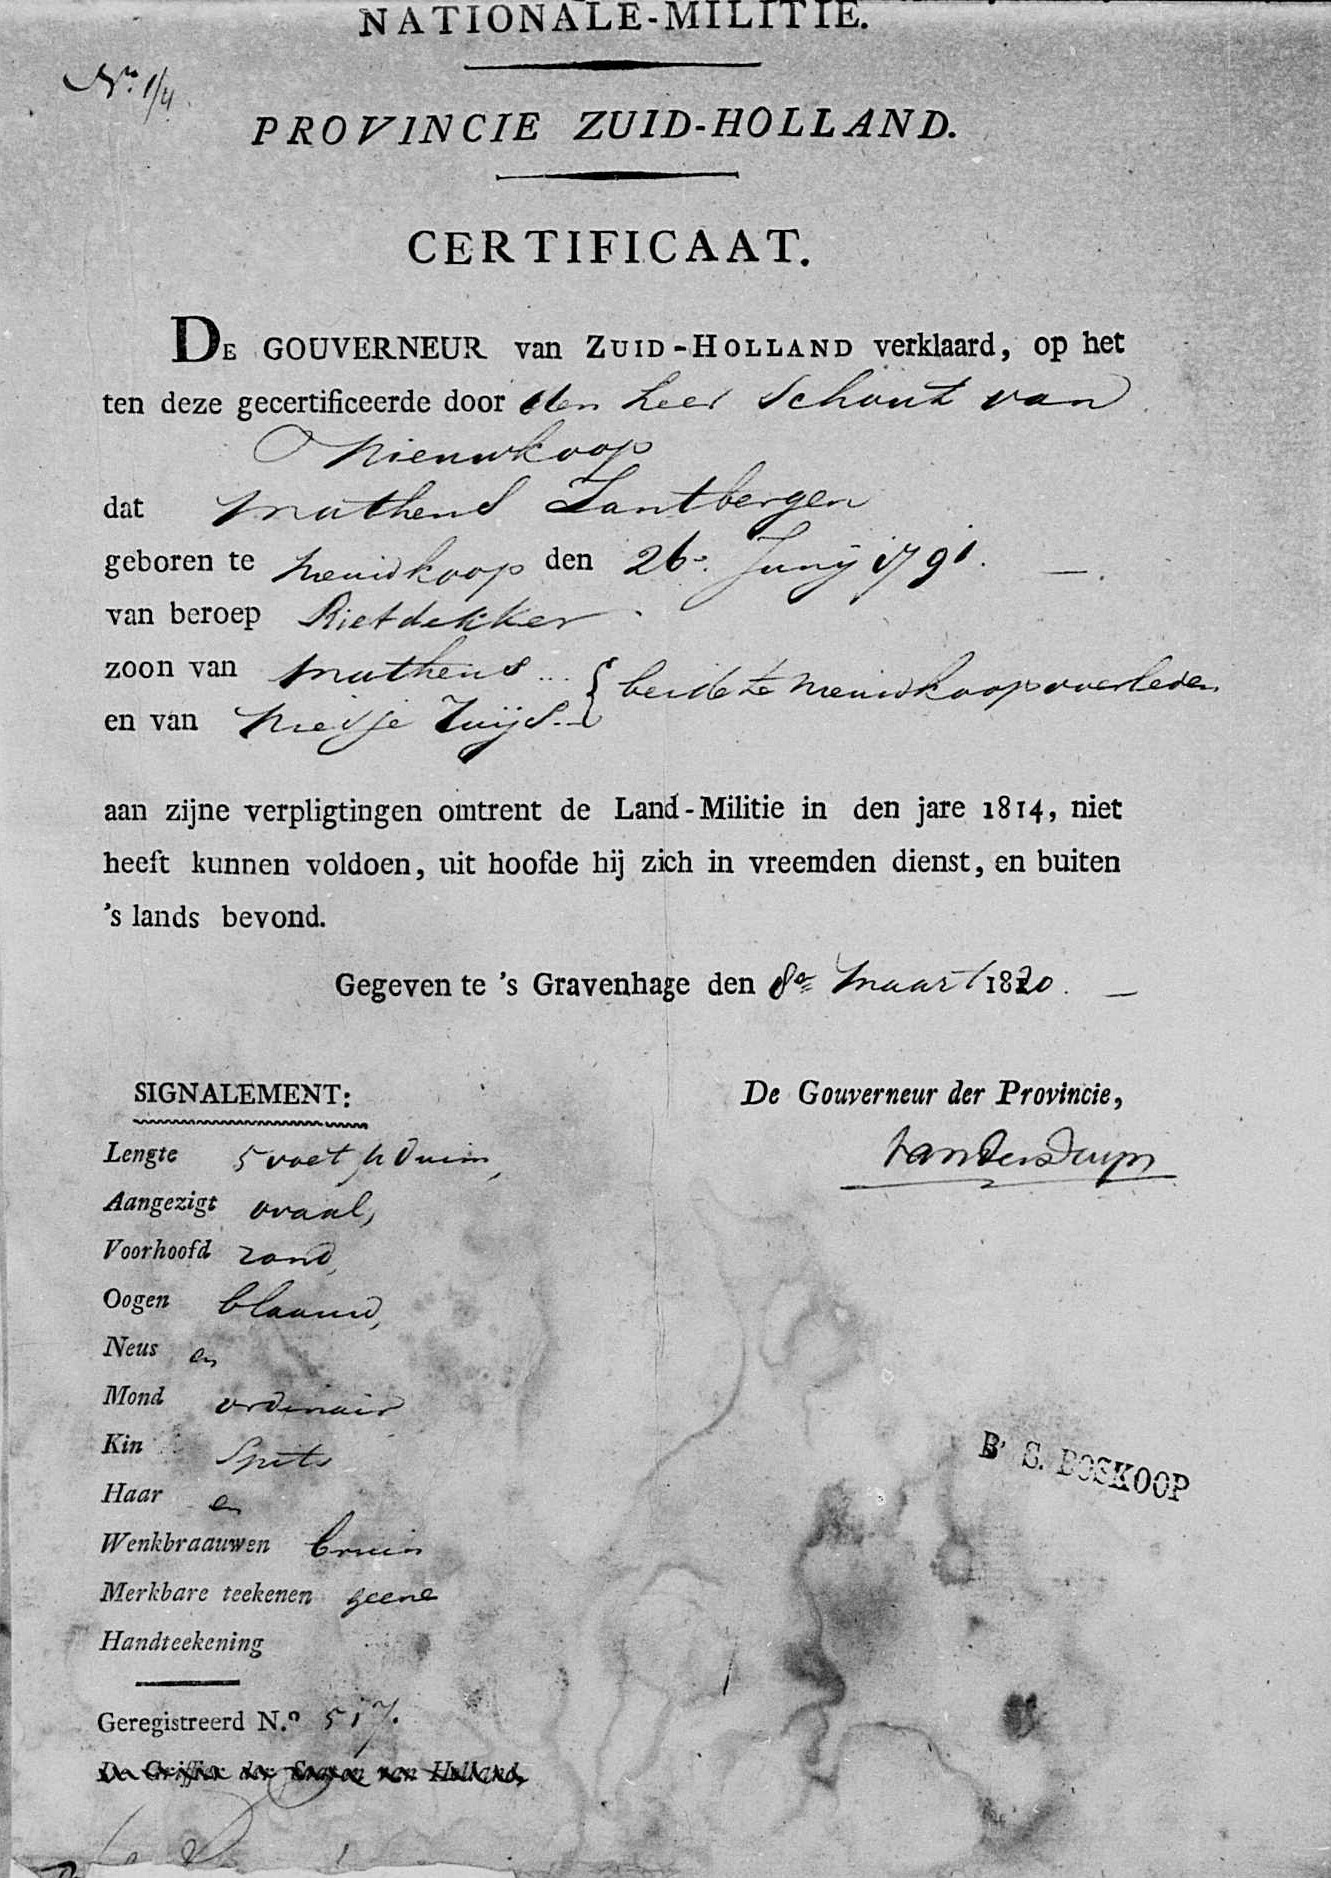 NATIONALE-MILITIE.
N.º 1/4
PROVINCIE ZUID-HOLLAND.
CERTIFICAAT.
DE GOUVERNEUR van ZUID-HOLLAND verklaard, op het
ten deze gecertificeerde door den heer Schout van
Nieuwkoop
dat Matheus Zantbergen
geboren te Nieuwkoop den 26e. Junij 1791.
van beroep Rietdekker
zoon van Matheus ... { beide te Nieuwkoop overleden
en van Niesje Zuijd
aan zijne verpligtingen omtrent de Land-Militie in den jare 1814, niet
heeft kunnen voldoen, uit hoofde hij zich in vreemden dienst, en buiten
's lands bevond.
Gegeven te 's Gravenhage den 8e Maart 1820.
SIGNALEMENT:
De Gouverneur der Provincie,
van der Duyn
Lengte 5 voet 4 duim,
Aangezigt ovaal,
Voorhoofd rond,
Oogen blaauw,
Neus en
Mond ordinair
Kin Spits
Haar en
Wenkbraauwen bruin
Merkbare teekenen geene
Handteekening
B. S. BOSKOOP
Geregistreerd N.º 517.
De Griffier der Staten van Holland,